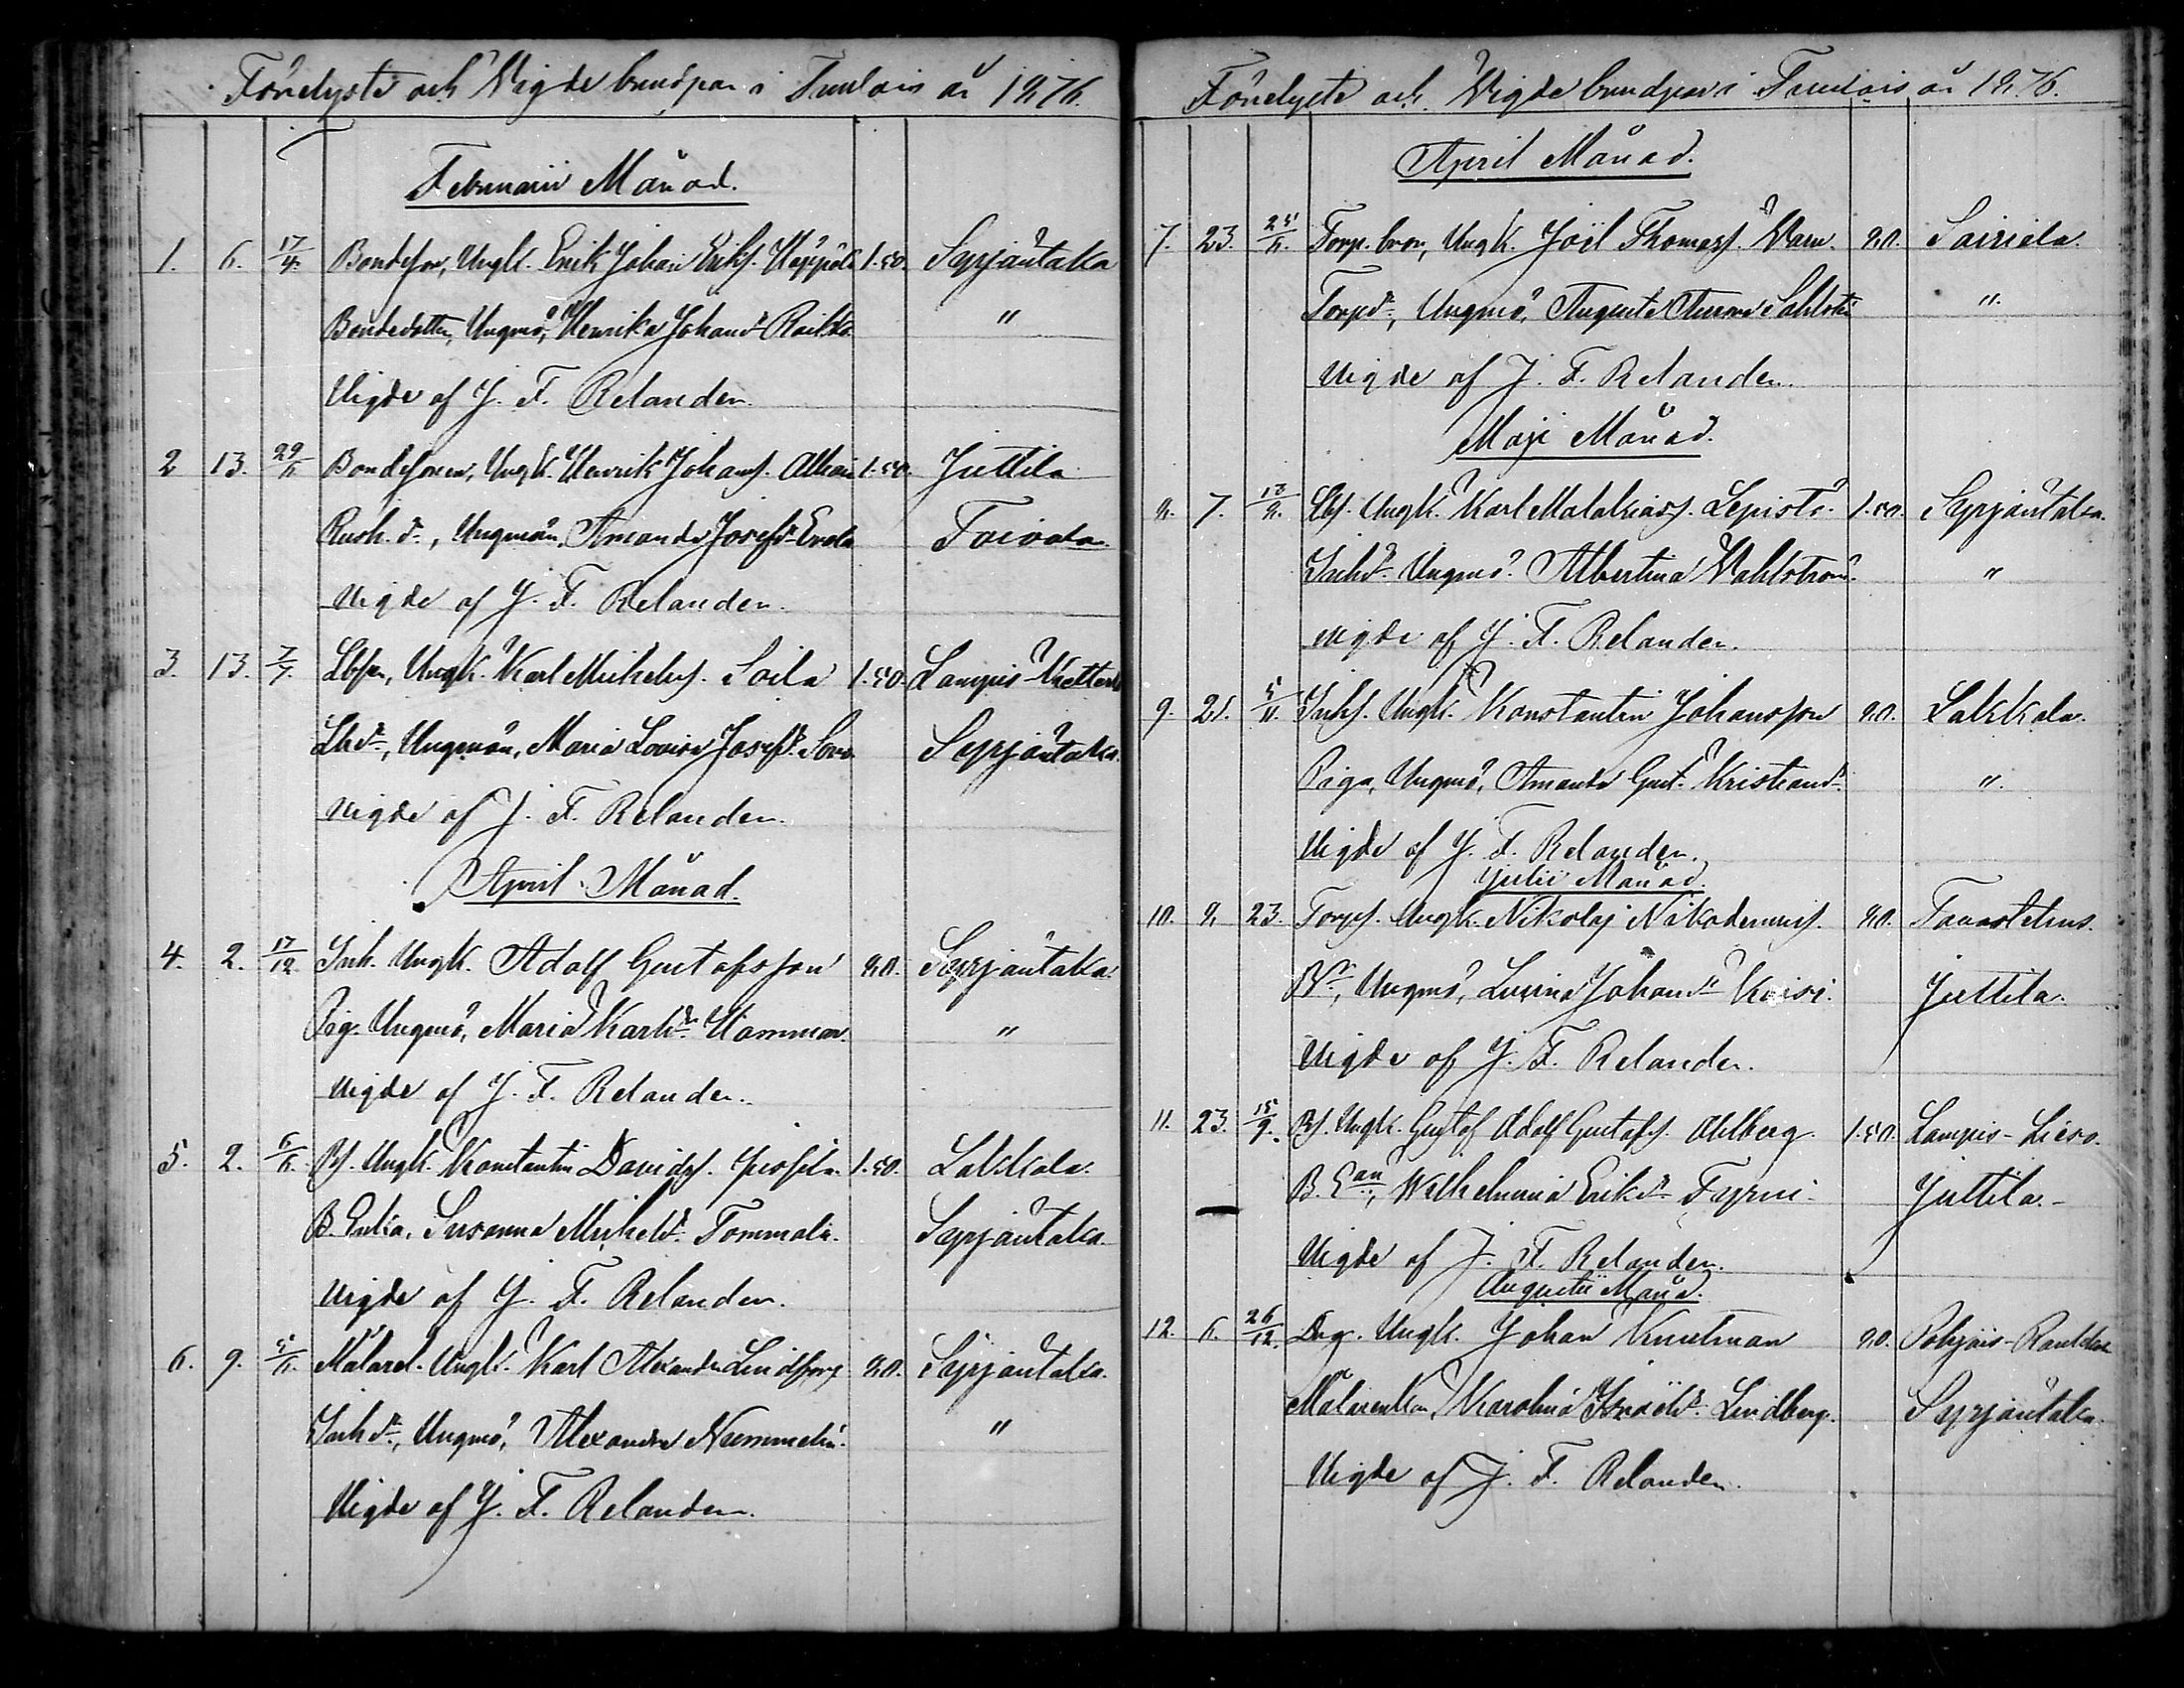 Förelyste och Vigde brudpar i Tuulois år 1876.
Februarii Månad.
1. 6. 17/4. Bondeson, Ungk. Erik Johan Eriks. Häppölä 1.50. Syrjäntaka
Bondedotter, Ungmö, Henrika Johansdr
"
Vigde af J. F. Relander.
2 13. 29/ Bondesonen, Ungk. Henrik Johans. 1.50. Juttila
Rush. dr, Ungmön, Amanda Josefsdr Toivola
Vigde af J. F. Relander.
3. 13. 7/7. Lbsn, Ungk. Karl Mickels. Soila 1.50. Lampis
Lbdr, Ungmön, Maria Lovisa Josefsdr Syrjäntaka.
Vigde af J. F. Relander.
April Månad.
4. 2. 17/12. Inh. Ungk. Adolf Gustafsson 80. Syrjäntaka.
Pig. Ungmö, Maria Karlsdr Hammar. "
Vigde af J. F. Relander.
5. 2. 6/ Bs. Ungk. Konstantin Davids. 1.50. Lakkala.
B. Enka, Susanna Mickelsdr Tommola. Syrjäntaka.
Vigde af J. F. Relander.
6. 9. 5/ Målarel. Ungk. Karl Alexander 80. Syrjäntaka.
Inhdr, Ungmö, Alexandra Nummelin. "
Vigde af J. F. Relander.
Förelyste och Vigde brudpar i Tuulois år 1876.
April Månad.
7. 23. 25/ Torp. bror, Ungk. Joël Thomass. 80. Sairiala.
Torpdr, Ungmö, Augusta "
Vigde af J. F. Relander.
Maji Månad.
8. 7. 13/8. Lbs. Ungk. Karl Malakiass. Lepistö. 1.50. Syrjäntaka.
Inhdr Ungmö. Albertina Wahlström. "
Vigde af J. F. Relander.
9. 21. 5/11. Inhs. Ungk. Konstantin Johansson 80. Lakkala.
Piga, Ungmö, Amanda Gust. Kristiansdr ".
Vigde af J. F. Relander.
Julii Månad.
10. 8 23. Torps. Ungk. Nikolaj Nikodemuss. 80. Tavastehus.
Bdr, Ungmö, Lusina Johansdr Juttila.
Vigde af J. F. Relander.
11. 23. 15/9. Bs. Ungk. Gustaf Adolf Gustafs. Ahlberg. 1.50. Lampis-Lieso.
B. Ean, Wilhelmina Eriksdr Juttila.
Vigde af J. F. Relander.
Augustii Månad.
12. 6. 26/12. Drg. Ungk. Johan Knutman 80. Pohjois-
Målarenkan, Karolina Israelsdr Lindberg. Syrjäntaka.
Vigde af J. F. Relander.